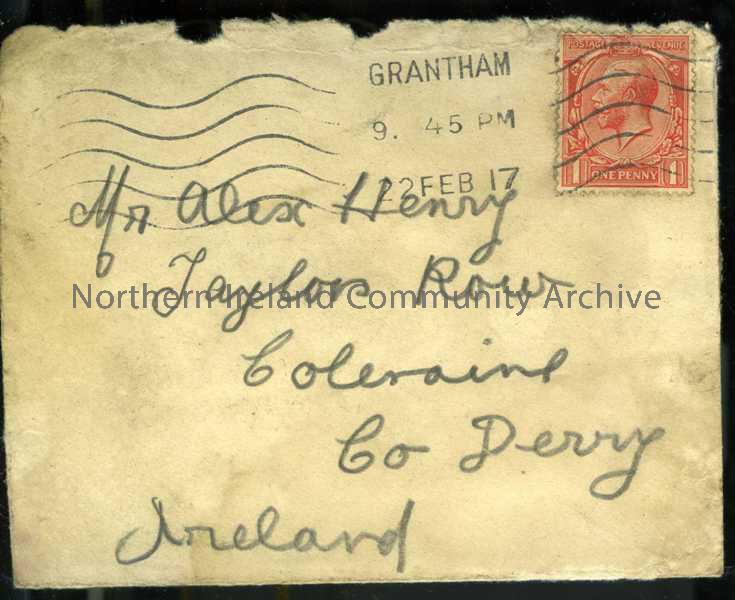 POSTAGE REVENUE
GRANTHAM
9. 45 PM
22 FEB 17
1 ONE PENNY 1
Mr Alex Henry
Taylors Row
Northern Ireland Community Archive
Coleraine
Co Derry
Ireland